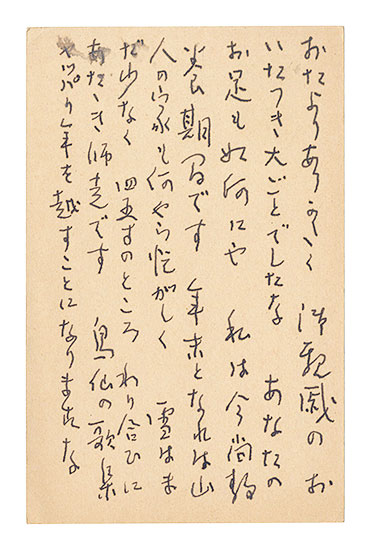 おたよりありがたく 御親戚のお
いたつき大ごとでしたな あなたの
お足も如何にや 私は今尚静
養期間です 年末となれば山
人の家も何やら忙がしく 雪はま
だ少なく 四五寸のところ わり合ひに
あたゝき師走です の歌集
やっぱり年を越すことになりますな